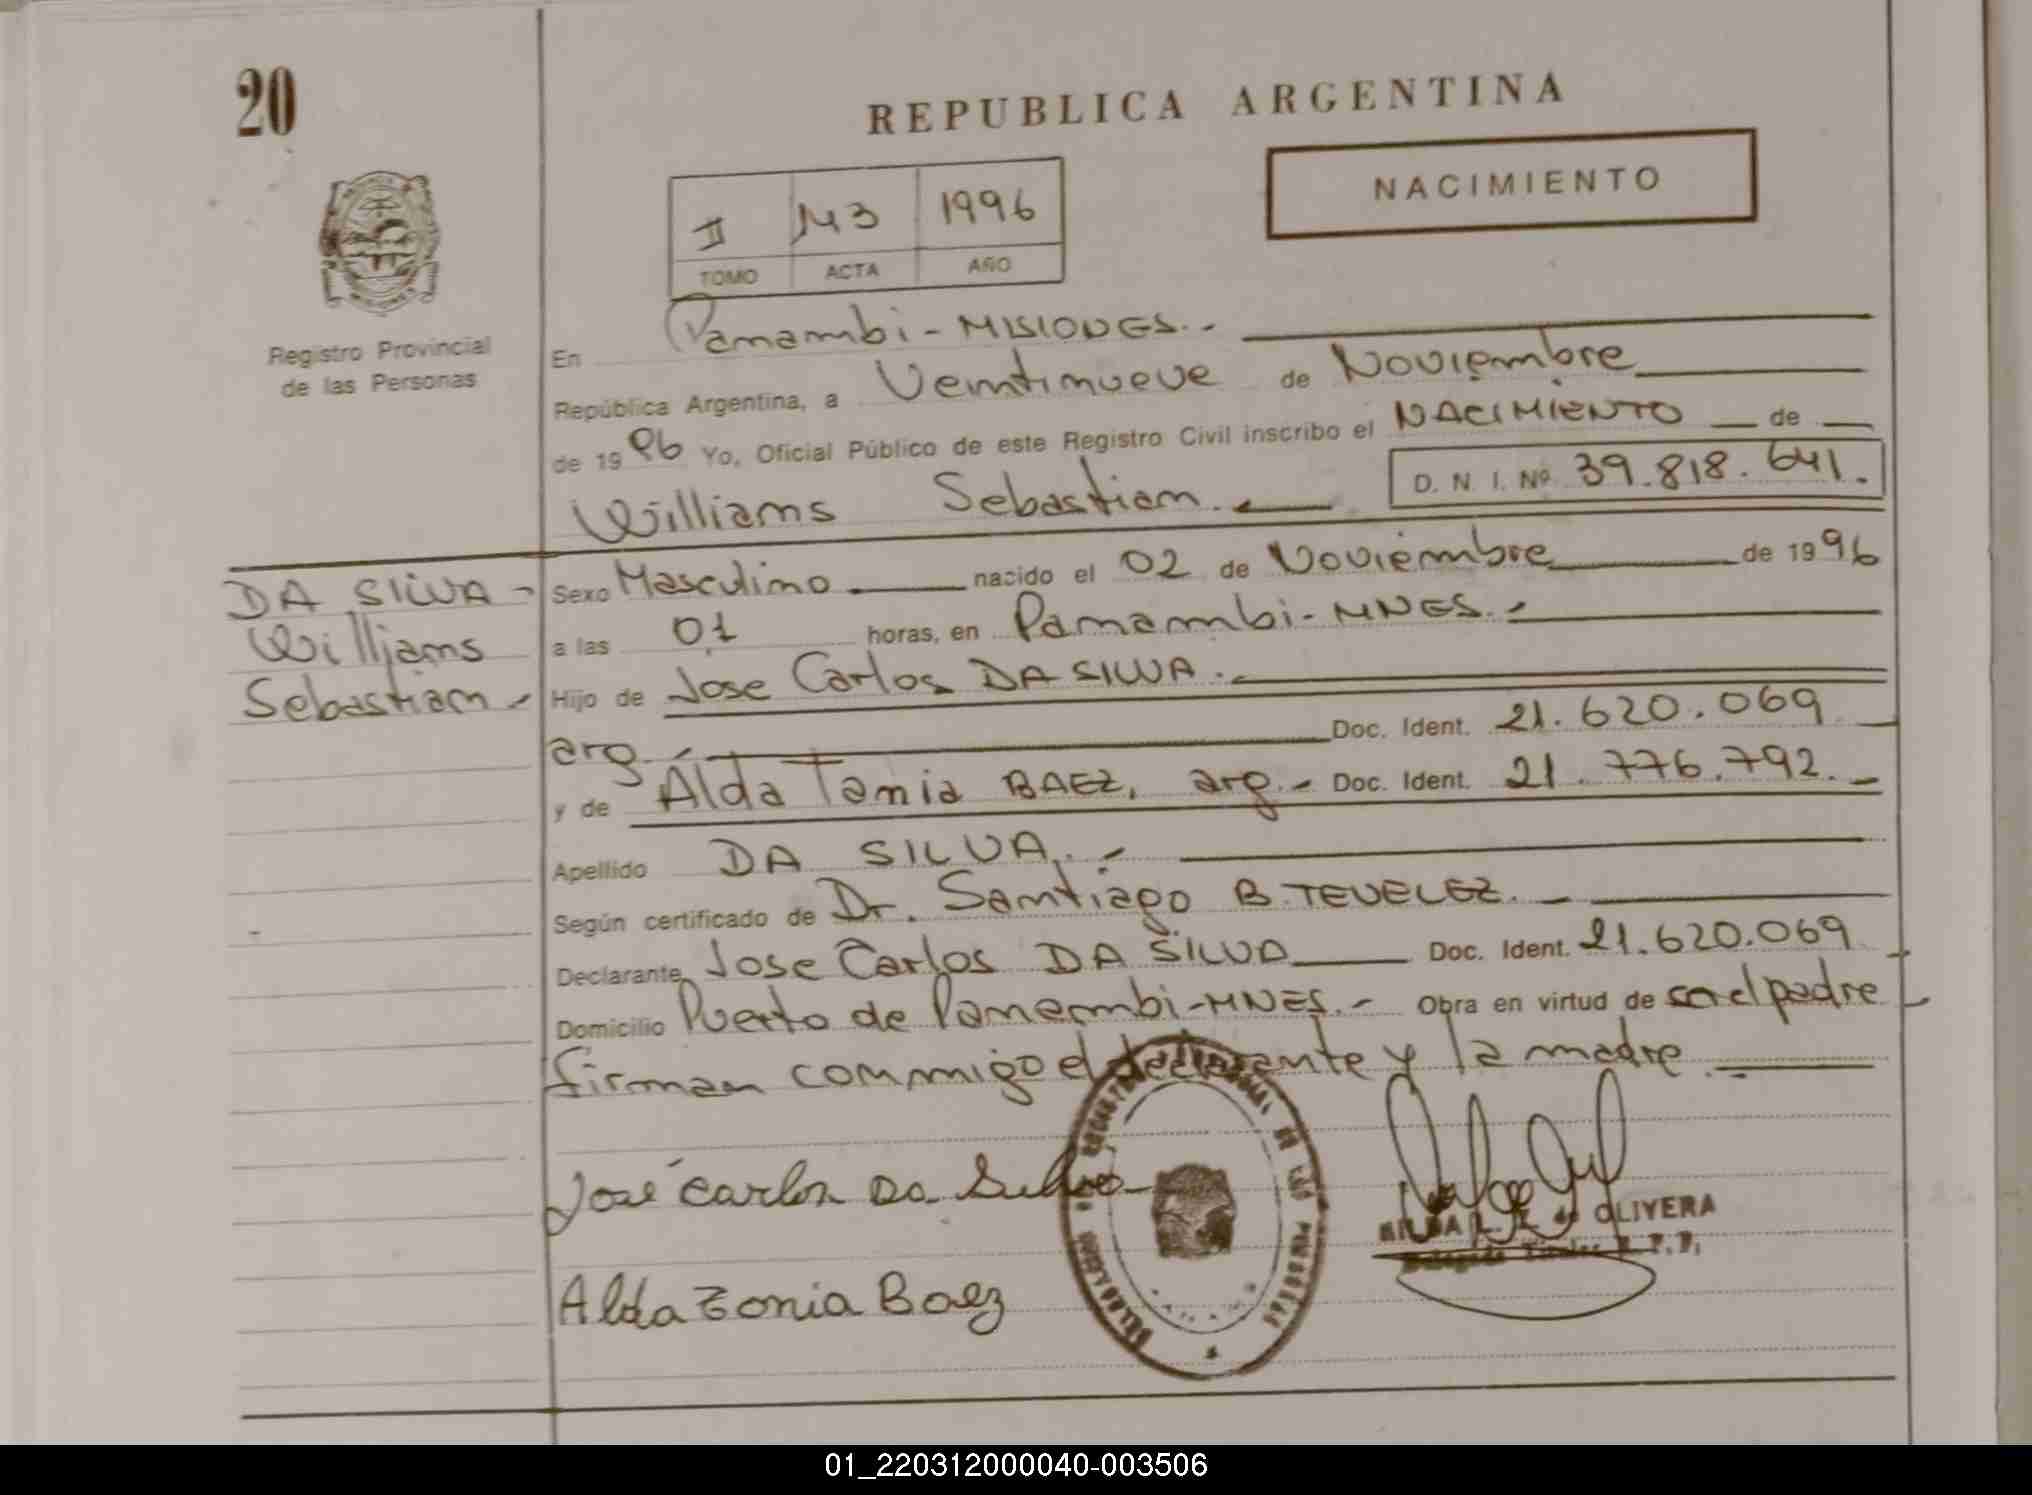 20
REPUBLICA ARGENTINA
NACIMIENTO
II 143 1996
TOMO ACTA AÑO
Registro Provincial
de las Personas
En Panambi - MISIONES.-
República Argentina, a Veintinueve de Noviembre
de 19 96 Yo, Oficial Público de este Registro Civil inscribo el NACIMIENTO de
Williams Sebastian.- D. N. I. Nº 39.818.641.
DA SILVA -
Williams
Sebastian -
Sexo Masculino nacido el 02 de Noviembre de 19 96
a las 01 horas, en Panambi - MNES.-
Hijo de Jose Carlos DA SILVA.-
arg.- Doc. Ident. 21.620.069
y de Alda Tania BAEZ, arg.- Doc. Ident. 21.776.792.-
Apellido DA SILVA.-
Según certificado de Dr. Santiago B. TEVELEZ.-
Declarante Jose Carlos DA SILVA Doc. Ident. 21.620.069
Domicilio Puerto de Panambi - MNES.- Obra en virtud de ser el padre
firman conmigo el declarante y la madre.-
José Carlos Da Silva
Alda Zonia Baez
OLIVERA
01_220312000040-003506